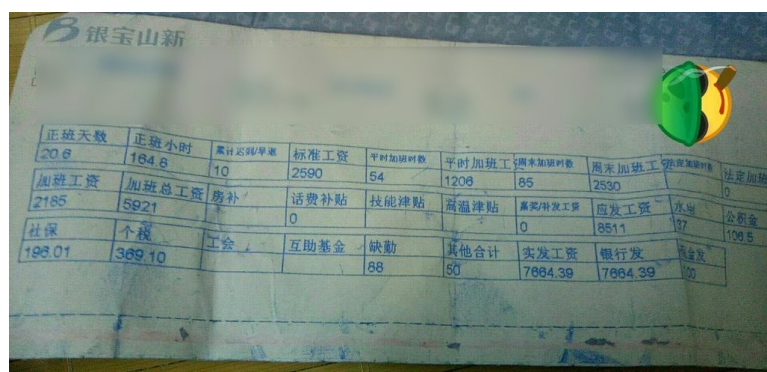 银宝山新
正班天数 正班小时 累计迟到/早退 标准工资 平时加班时数 平时加班工 周末加班时数 周末加班工 法定加班时数 法定加班
20.6 164.8 10 2590 54 1206 85 2530 0
加班工资 加班总工资 房补 话费补贴 技能津贴 高温津贴 嘉奖/补发工资 应发工资 水电 公积金
2185 5921 0 0 8511 37 106.5
社保 个税 工会 互助基金 缺勤 其他合计 实发工资 银行发 现金发
196.01 369.10 88 50 7664.39 7664.39